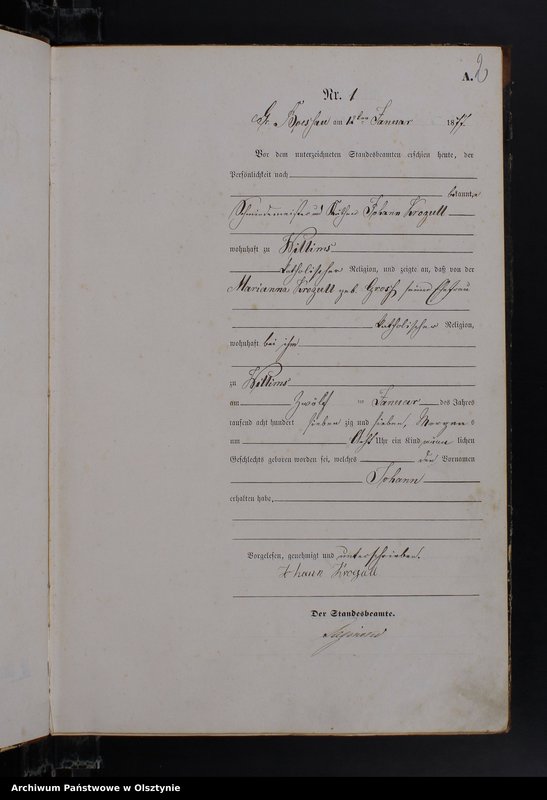 A. 2
Nr. 1
Gr. am 12ten Januar 1877.
Vor dem unterzeichneten Standesbeamten erschien heute, der
Persönlichkeit nach
bekannt,
Johann Krogull
wohnhaft zu Willims
katholischer Religion, und zeigte an, daß von der
Marianna Krogull geb. Grosch seiner Ehefrau
katholischer Religion,
wohnhaft bei ihm
zu Willims
am Zwölf ten Januar des Jahres
tausend acht hundert sieben zig und sieben, Morgens
um Acht Uhr ein Kind männ lichen
Geschlechts geboren worden sei, welches den Vornamen
Johann
erhalten habe,
Vorgelesen, genehmigt und unterschrieben.
Johann Krogull
Der Standesbeamte.
Archiwum Państwowe w Olsztynie